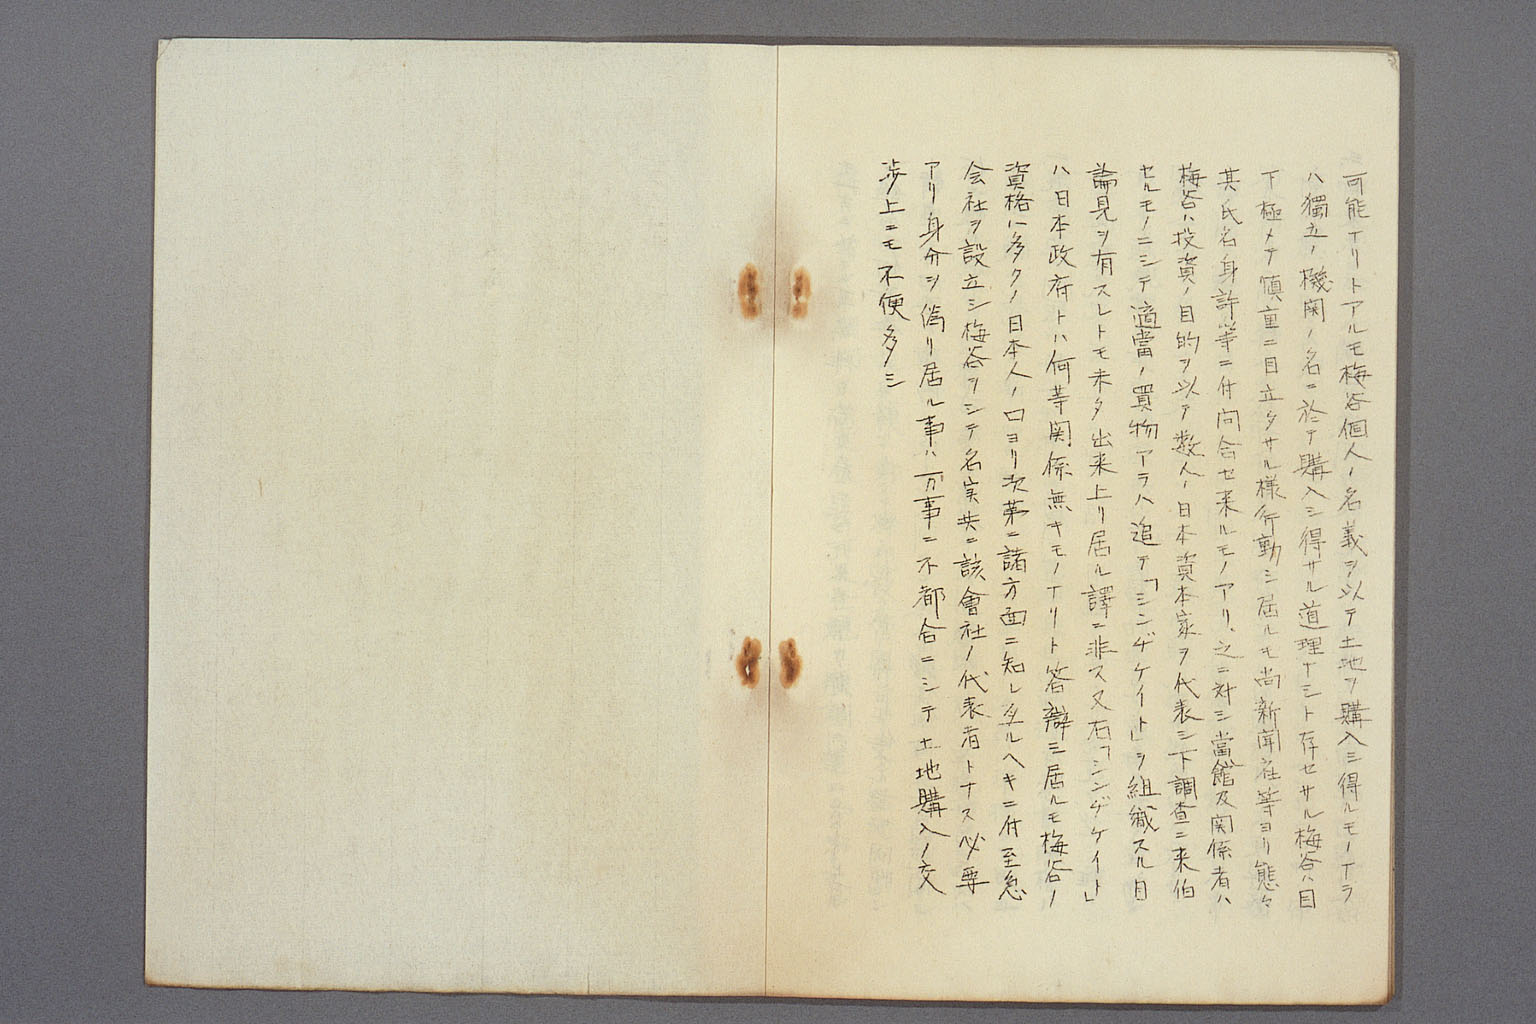 可能ナリトアルモ梅谷個人ノ名義ヲ以テ土地ヲ購入シ得ルモノナラ
ハ獨立ノ機関ノ名ニ於テ購入シ得サル道理ナシト存セサル梅谷ハ目
下極メテ愼重ニ目立タサル様行動シ居ルモ尚新聞社等ヨリ態々
其氏名身許等ニ付問合セ来ルモノアリ、之ニ対シ當館及関係者ハ
梅谷ハ投資ノ目的ヲ以テ数人ノ日本資本家ヲ代表シ下調査ニ来伯
セルモノニシテ適當ノ買物アラハ追テ「シンヂケイト」ヲ組織スル目
論見ヲ有スレトモ未タ出来上リ居ル譯ニ非ス又右「シンヂケイト」
ハ日本政府トハ何等関係無キモノナリト答辯シ居ルモ梅谷ノ
資格ハ多クノ日本人ノ口ヨリ次第ニ諸方面ニ知レタルヘキニ付至急
会社ヲ設立シ梅谷ヲシテ名実共ニ該會社ノ代表者トナス必要
アリ身分ヲ偽リ居ル事ハ万事ニ不都合ニシテ土地購入ノ交
渉上ニモ不便多シ